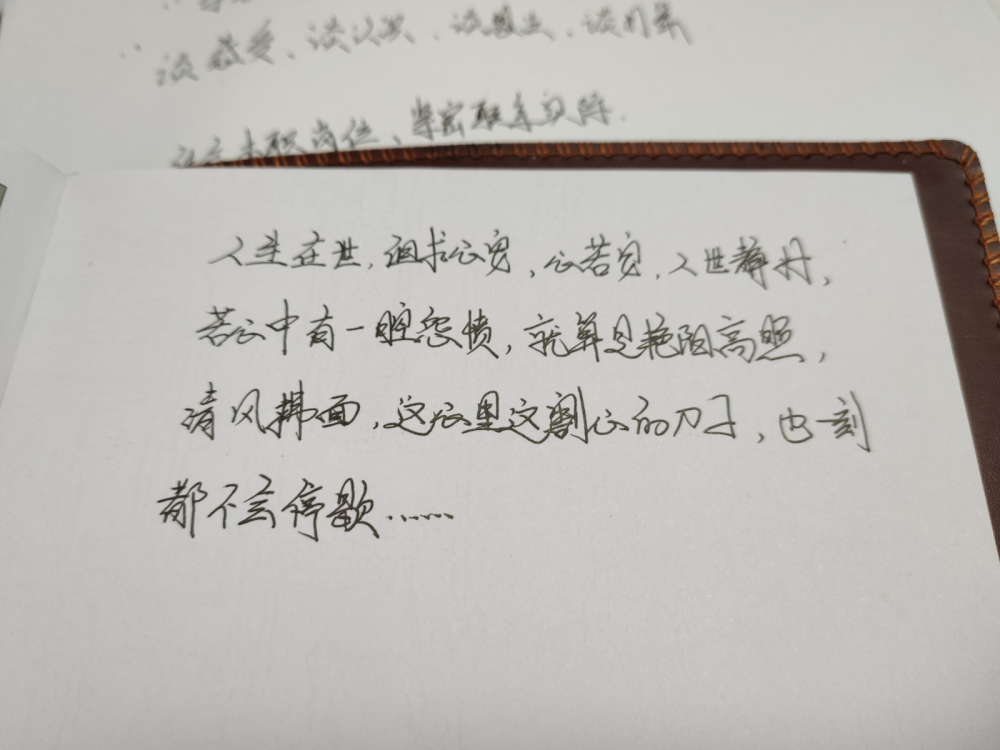 谈感受、谈认识、谈想法、谈打算
本职岗位、
人生在世,但求心安,心若安,人世静好,
若心中有一腔怨愤,就算是艳阳高照,
清风拂面,这夜里这割心的刀子,也一刻
都不会停歇……